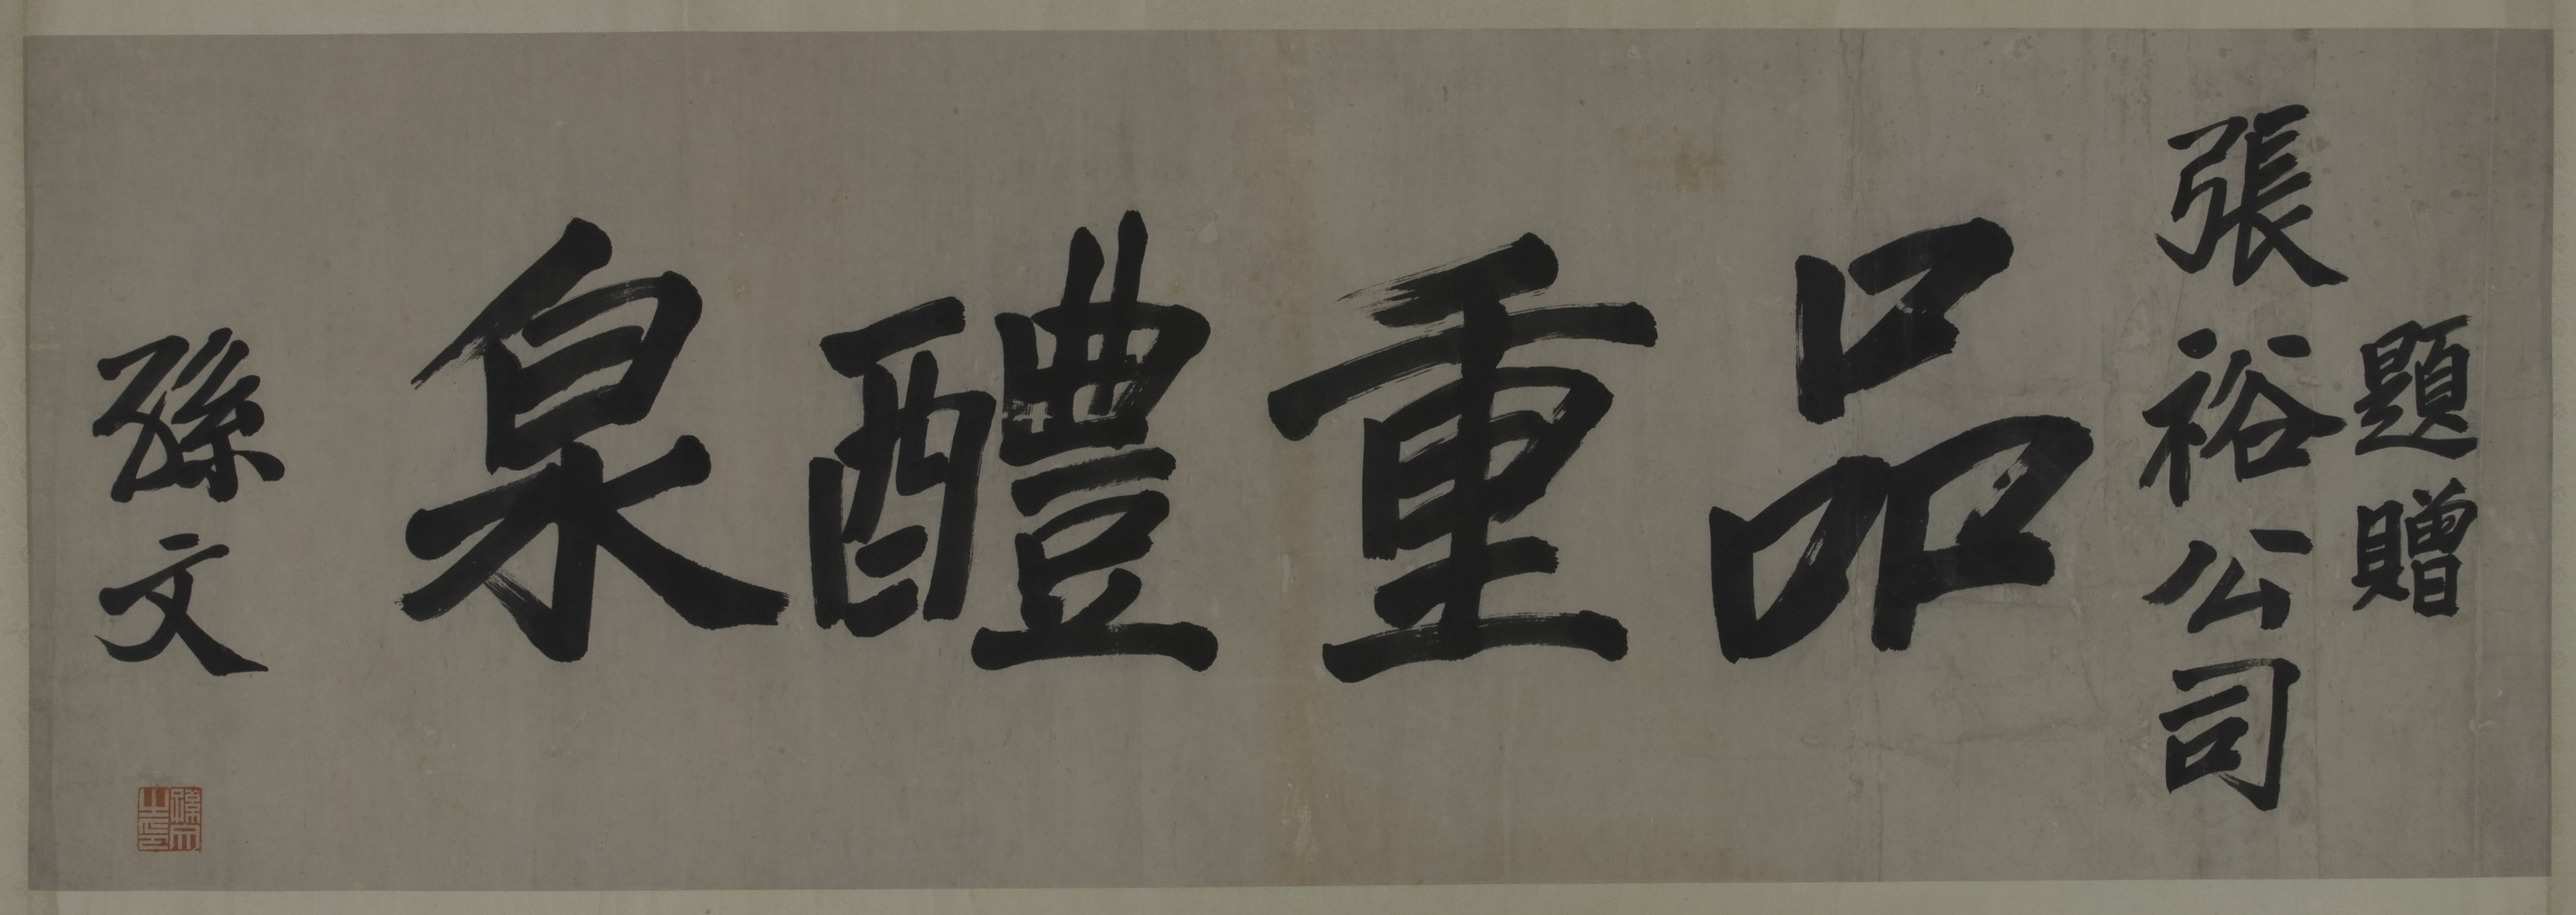 題贈
張裕公司
品重醴泉
孫文
孫文之印